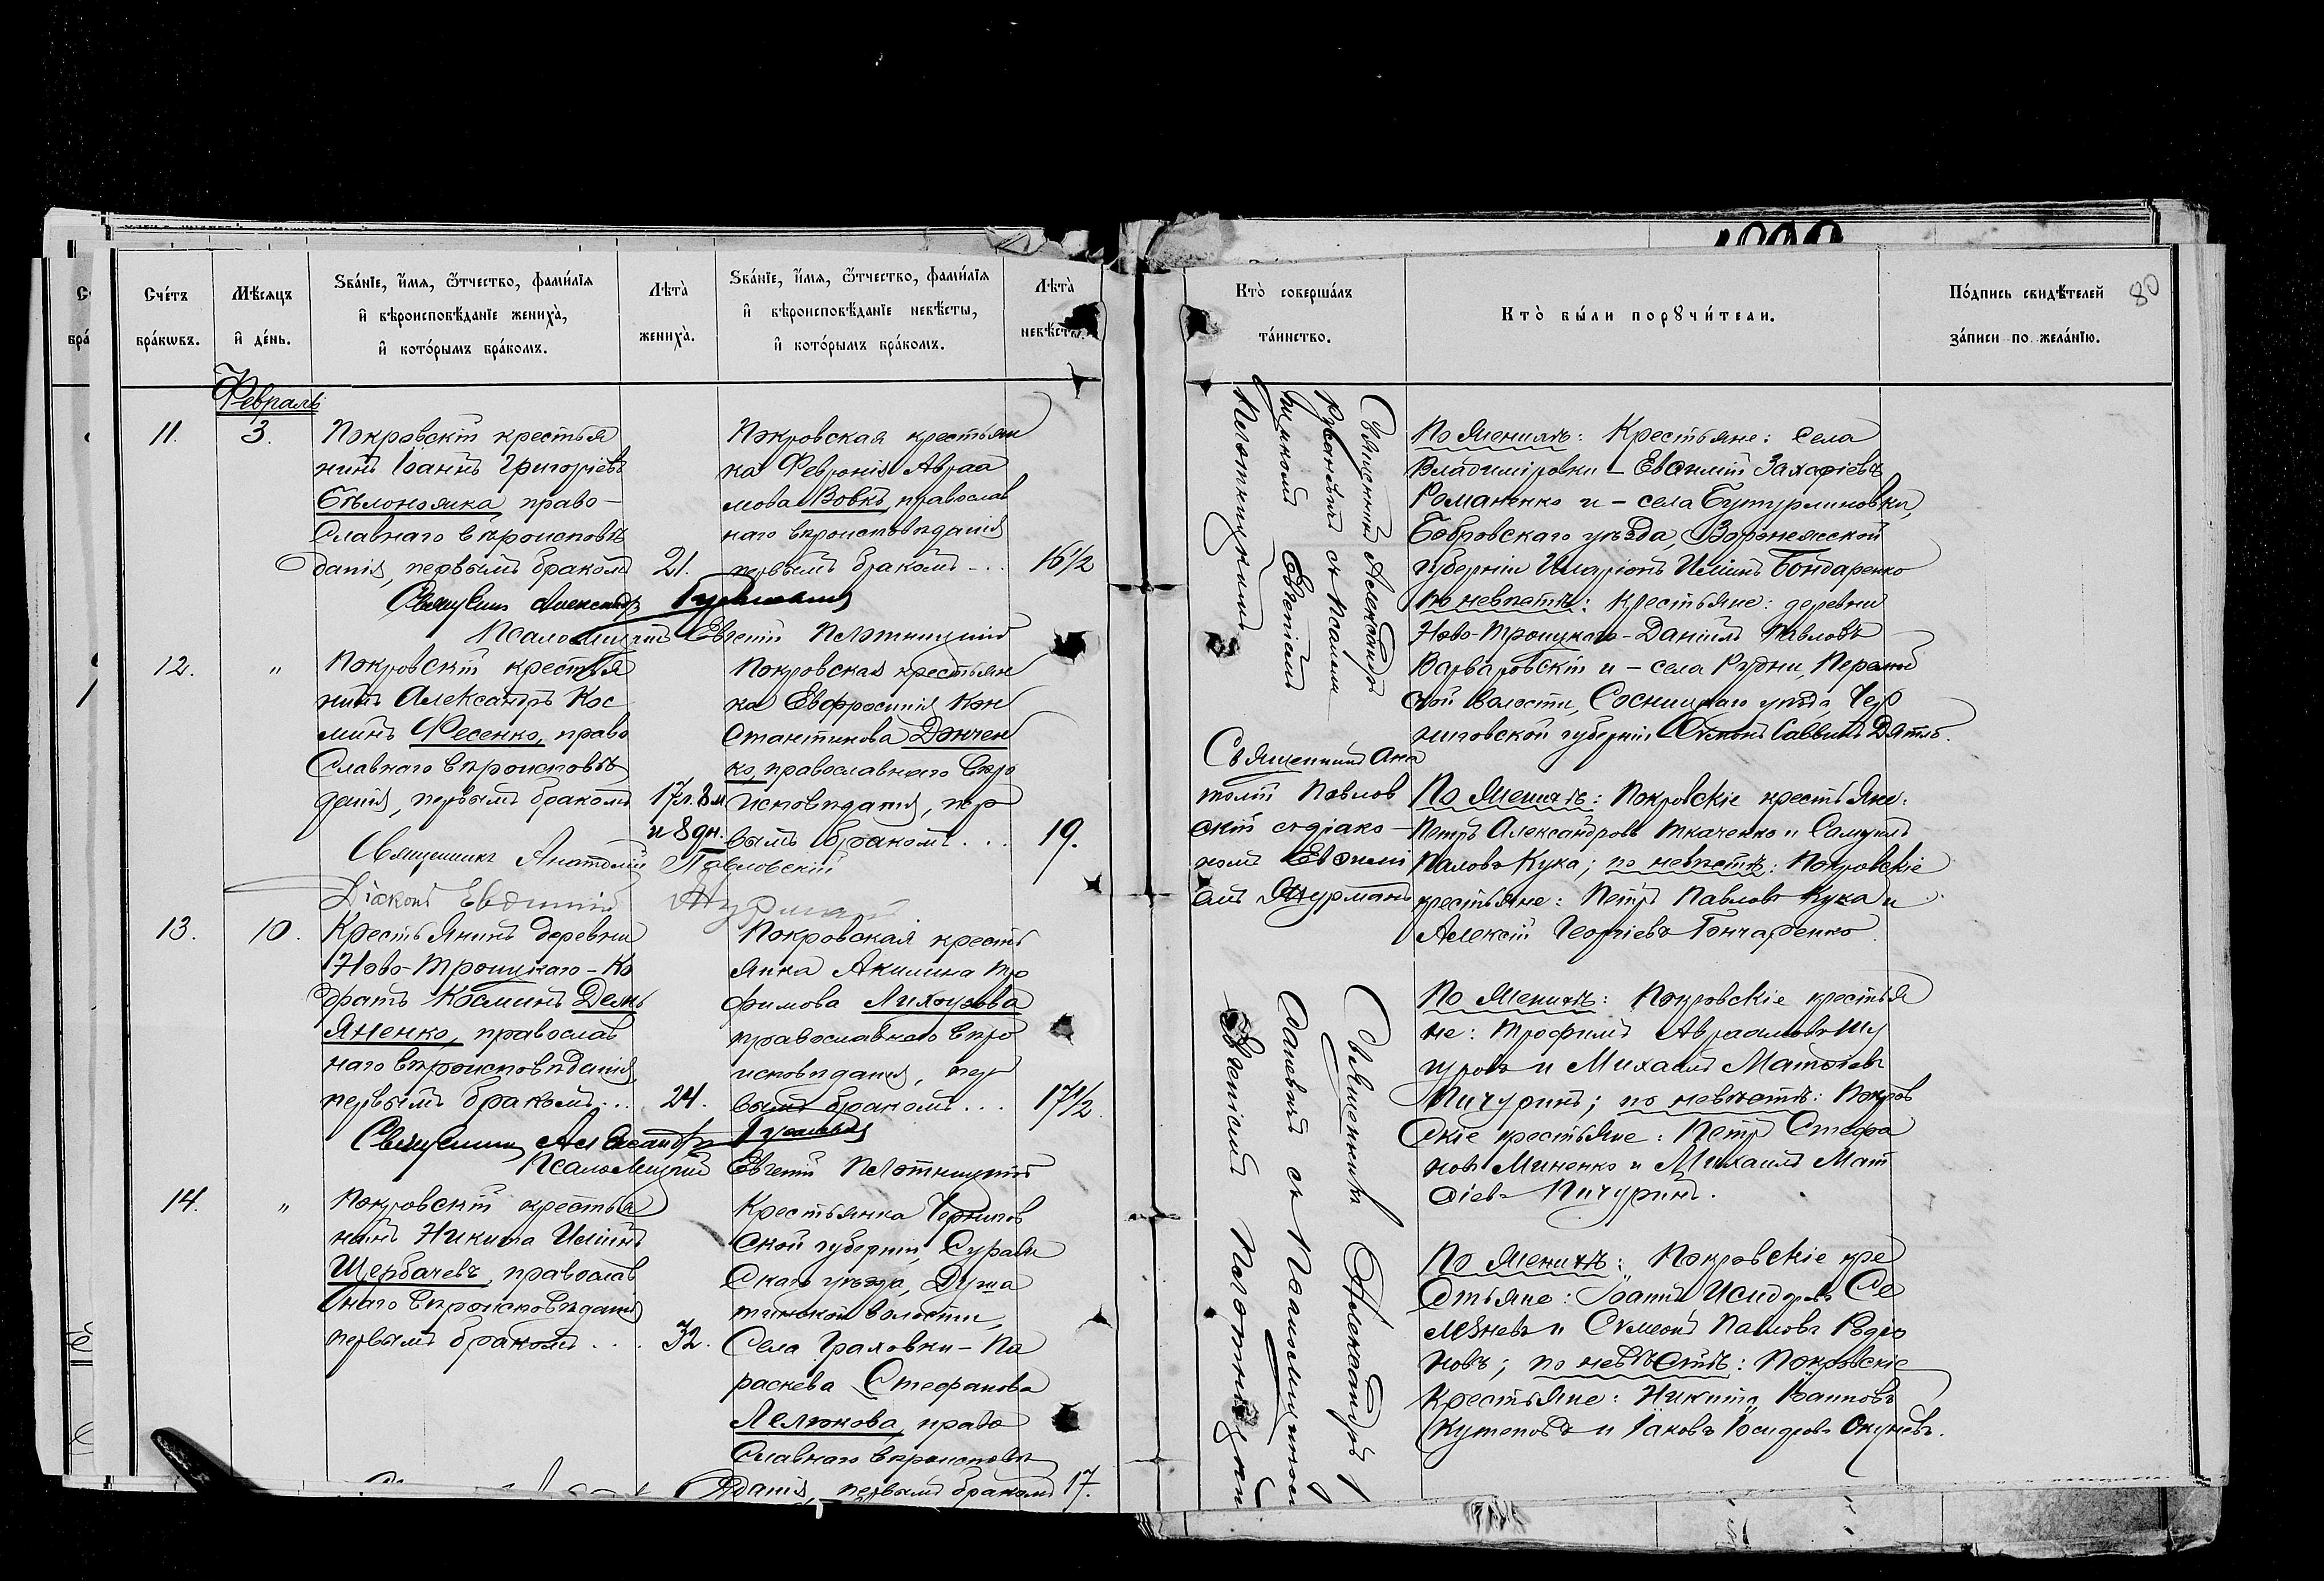 80
Счéтъ
брáкωвъ.
Мѣ́сяцъ
и҆ дéнь.
Ѕвáнїе, и҆́мя, ѻ҆́тчество, фами́лїя
и҆ вѣроисповѣ́данїе женихà,
и҆ котóрымъ брáкомъ.
Лѣтà
женихà.
Ѕвáнїе, и҆́мя, ѻ҆́тчество, фами́лїя
и҆ вѣроисповѣ́данїе невѣ́сты,
и҆ котóрымъ брáкомъ.
Лѣтà
невѣ́сты.
Февраль
11.
3.
Покровскій крестья
нинъ Іоаннъ Григоріевъ
Бѣлоножка право-
славнаго вѣроисповѣ
данія, первымъ бракомъ
21.
Покровская крестьян
ка Февронія Авраа
мова Вовкъ, православ
наго вѣроисповѣданія
первымъ бракомъ...
16 1/2
Священникъ Александръ
Псаломщикъ Евгеній Плотницкій
12.
"
Покровскій крестья
нинъ Александръ Кос
минъ Фесенко, право
славнаго вѣроисповѣ
данія, первымъ бракомъ
17л. 8м
и 8 дн.
Покровская крестьян
ка Евфросинія Кон
стантинова Дончен
ко, православнаго вѣро
исповѣданія, пер
вымъ бракомъ...
19.
Священникъ Анатолій Павловскій
Діаконъ Евѳимій
13.
10.
Крестьянинъ деревни
Ново-Троицкаго - Ко
дратъ Косминъ Демь
яненко, православ
наго вѣроисповѣданія,
первымъ бракомъ...
24.
Покровская кресть
янка Акилина Тро
фимова
православнаго вѣро
исповѣданія, пер
вымъ бракомъ...
17 1/2.
Священникъ Александръ
Псаломщикъ Евгеній Плотницкій
14.
"
Покровскій крестья
нинъ Никита Иліинъ
Щербачевъ, православ
наго вѣроисповѣданія
первымъ бракомъ...
32.
Крестьянка Чернигов
ской губерніи, Сураж
скаго уѣзда, Душа
тинской волости,
села Граховки - Па
раскева Стефанова
Лелюкова, право
славнаго вѣроисповѣ
данія, первымъ бракомъ
17.
Ктò совершáлъ
тáинство.
Ктò бы́ли порꙋчи́тели.
Пóдпись свидѣ́телей
зáписи по желáнїю.
Священникъ Александръ
съ Псалом
щикомъ Евгеніемъ
Плотницкимъ
По женихѣ: Крестьяне: села
Владиміровки - Евѳимій Захаріевъ
Романенко и - села Бутурлиновки,
Бобровскаго уѣзда, Воронежской
губерніи Иларіонъ Иліинъ Бондаренко
по невѣстѣ: крестьяне: деревни
Ново-Троицкаго - Даніилъ Павловъ
Варваровскій и - села Рудни,
ской волости, Сосницкаго уѣзда, Чер
ниговской губерніи Саввинъ
Священникъ Ана
толій Павлов
скій съ діако-
номъ Евѳимі
емъ
По женихѣ: Покровскіе крестьяне:
Петръ Александровъ Ткаченко и Самуилъ
Павловъ Кука; по невѣстѣ: Покровскіе
крестьяне: Петръ Павловъ Кука и
Алексій Георгіевъ Гончаренко
Священникъ Александръ
съ Псаломщикомъ
Евгеніемъ
По женихѣ: Покровскіе крестья
не: Трофимъ Авраамовъ Щу
ровъ и Михаилъ Матѳіевъ
Пичуринъ; по невѣстѣ: Покров
скіе крестьяне: Петръ Стефа
новъ Миненко и Михаилъ Мат
ѳіевъ Пичуринъ.
По женихѣ: Покровскіе кре
стьяне: Іоаннъ Исидоровъ Се
лезневъ и Сѵмеонъ Павловъ Родіо
новъ; по невѣстѣ: Покровскіе
крестьяне: Никита Іоанновъ
Кутеповъ и Іаковъ Исидоровъ Окуневъ.